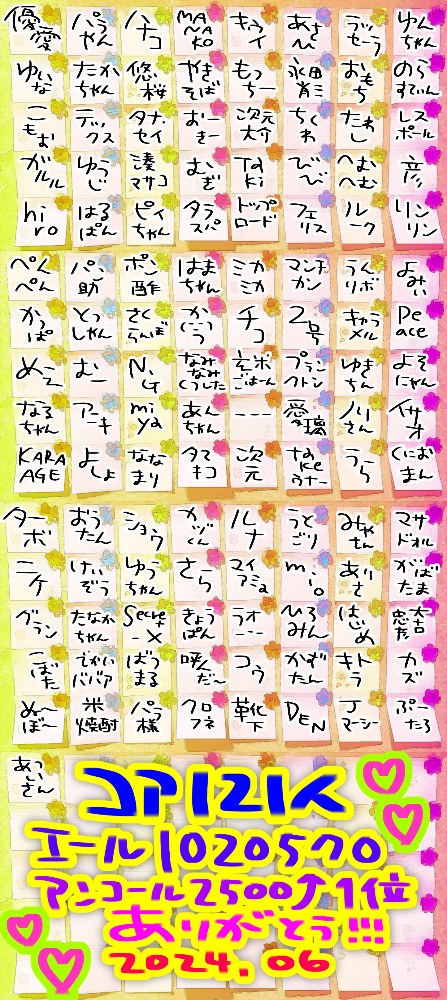 優愛 パラやん ハチコ MANAKO キウイ あさひ ラッセーラ ゆんちゃん
ゆいな たかちゃん 悠桜 やきそば もっちー おもち のらすてぃいん
こもお デックス タナセイ おーきー 次元大介 ちくわ たわし レスポール
ガルル ゆうじ 湊マサコ むぎ TaKi びび へむへむ 彦
hiro はるぱん ピィちゃん タラスパ トップロード フェリス ルーク リンリン
ぺんぺん パン助 ポン酢 はまちゃん ミカミカ マンチカン うんリボ よみぃ
かっぱ とっしゃん さくらんぼ かにこう チコ 2号 キャラメル Peace
めえ むー N,G なみなみくうした 玄米ごはーん プランクトン ゆまちん よぞにゃん
なるちゃん アーキ miya あんちゃん --- 愛璃 ノリさん イサオ
KARAAGE よしよ ななまり タマキコ 次元 takeウナー うらら くにおまん
ターボ おうたん ショウ カヅくん ルナ うとごり みやさん マサドオル
ニケ けいぞう ゆうちゃん さらら マイアミュ mio ありさ がばたま
グラン たなかちゃん Secret-X きょうぱん ラオー ひろみん はじめ 忠彦
こぼた でかいババア ばつまる 呼んだ~ コウ かずたん キトラ カズ
ぬ~ぼ~ 米焼酎 パラ様 クロフネ 靴下 DEN Jマーシー ぷーたろ
あっいさん
コア121人
エール1020570
アンコール2500↑1位
ありがとう!!!
2024.06